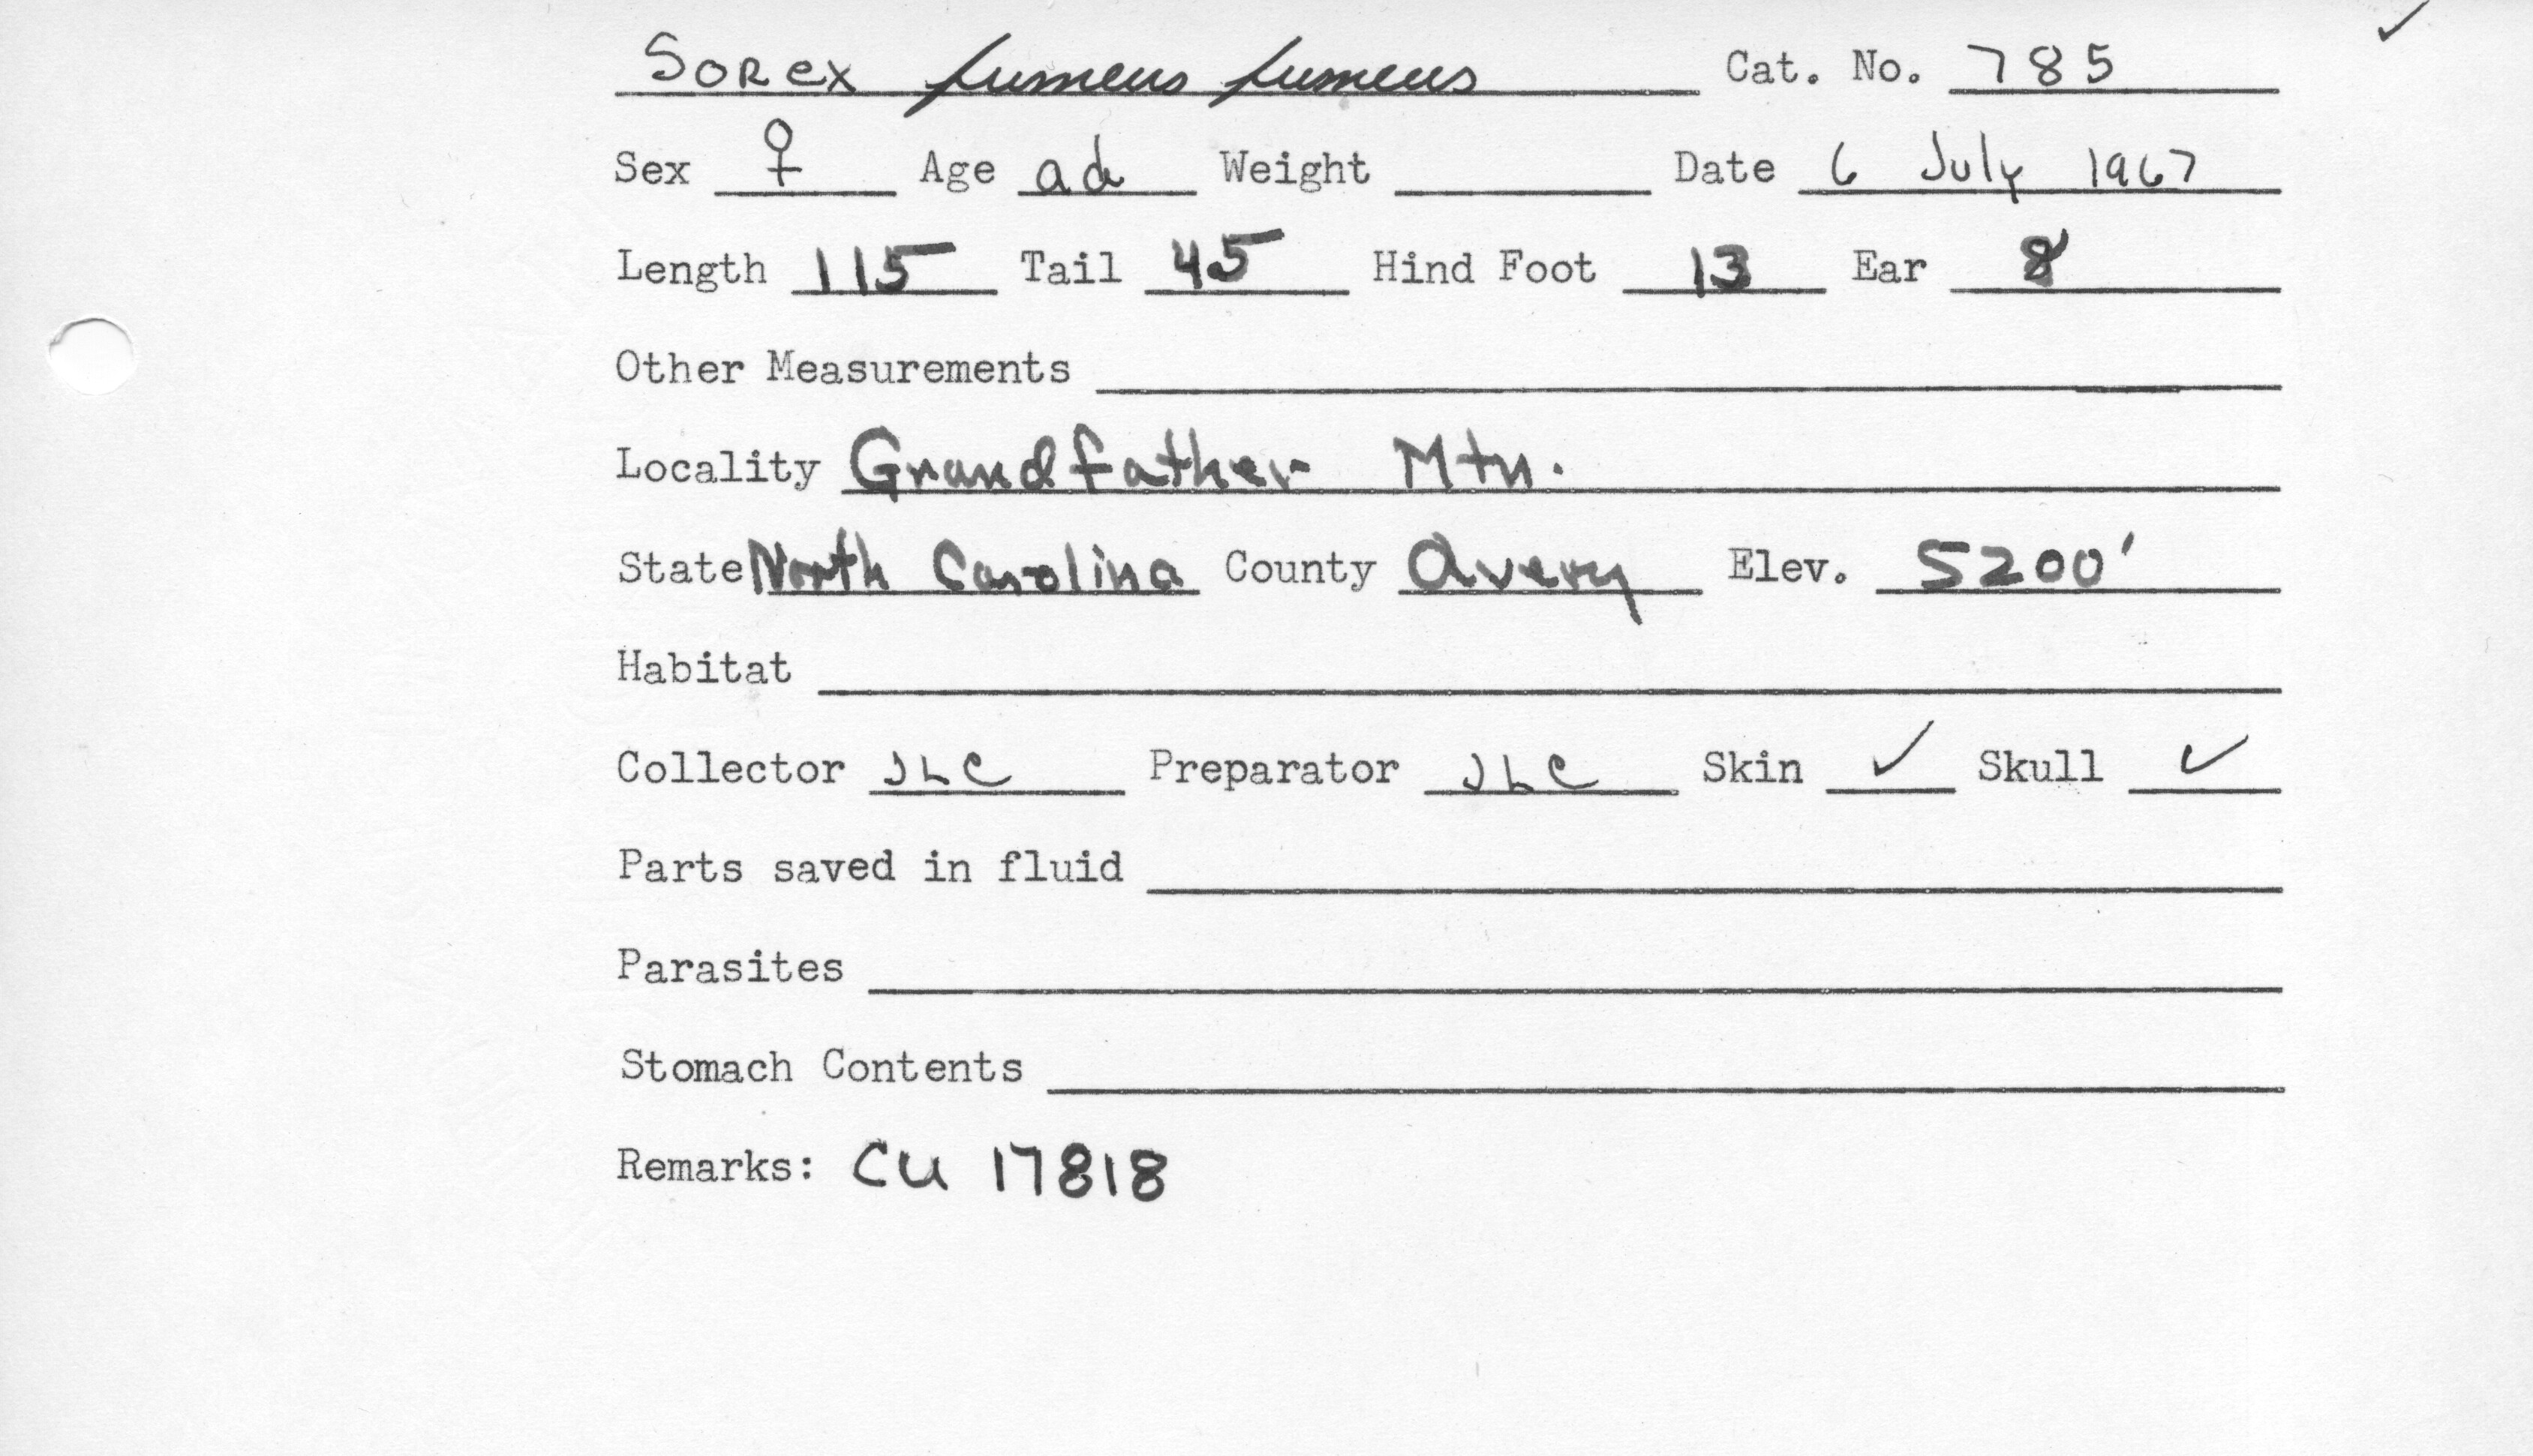 Sorex fumeus fumeus Cat. No. 785
Sex ♀ Age ad Weight Date 6 July 1967
Length 115 Tail 45 Hind Foot 13 Ear 8
Other Measurements
Locality Grandfather Mtn.
State North Carolina County Avery Elev. 5200'
Habitat
Collector JLC Preparator JLC Skin ✓ Skull ✓
Parts saved in fluid
Parasites
Stomach Contents
Remarks: CU 17818